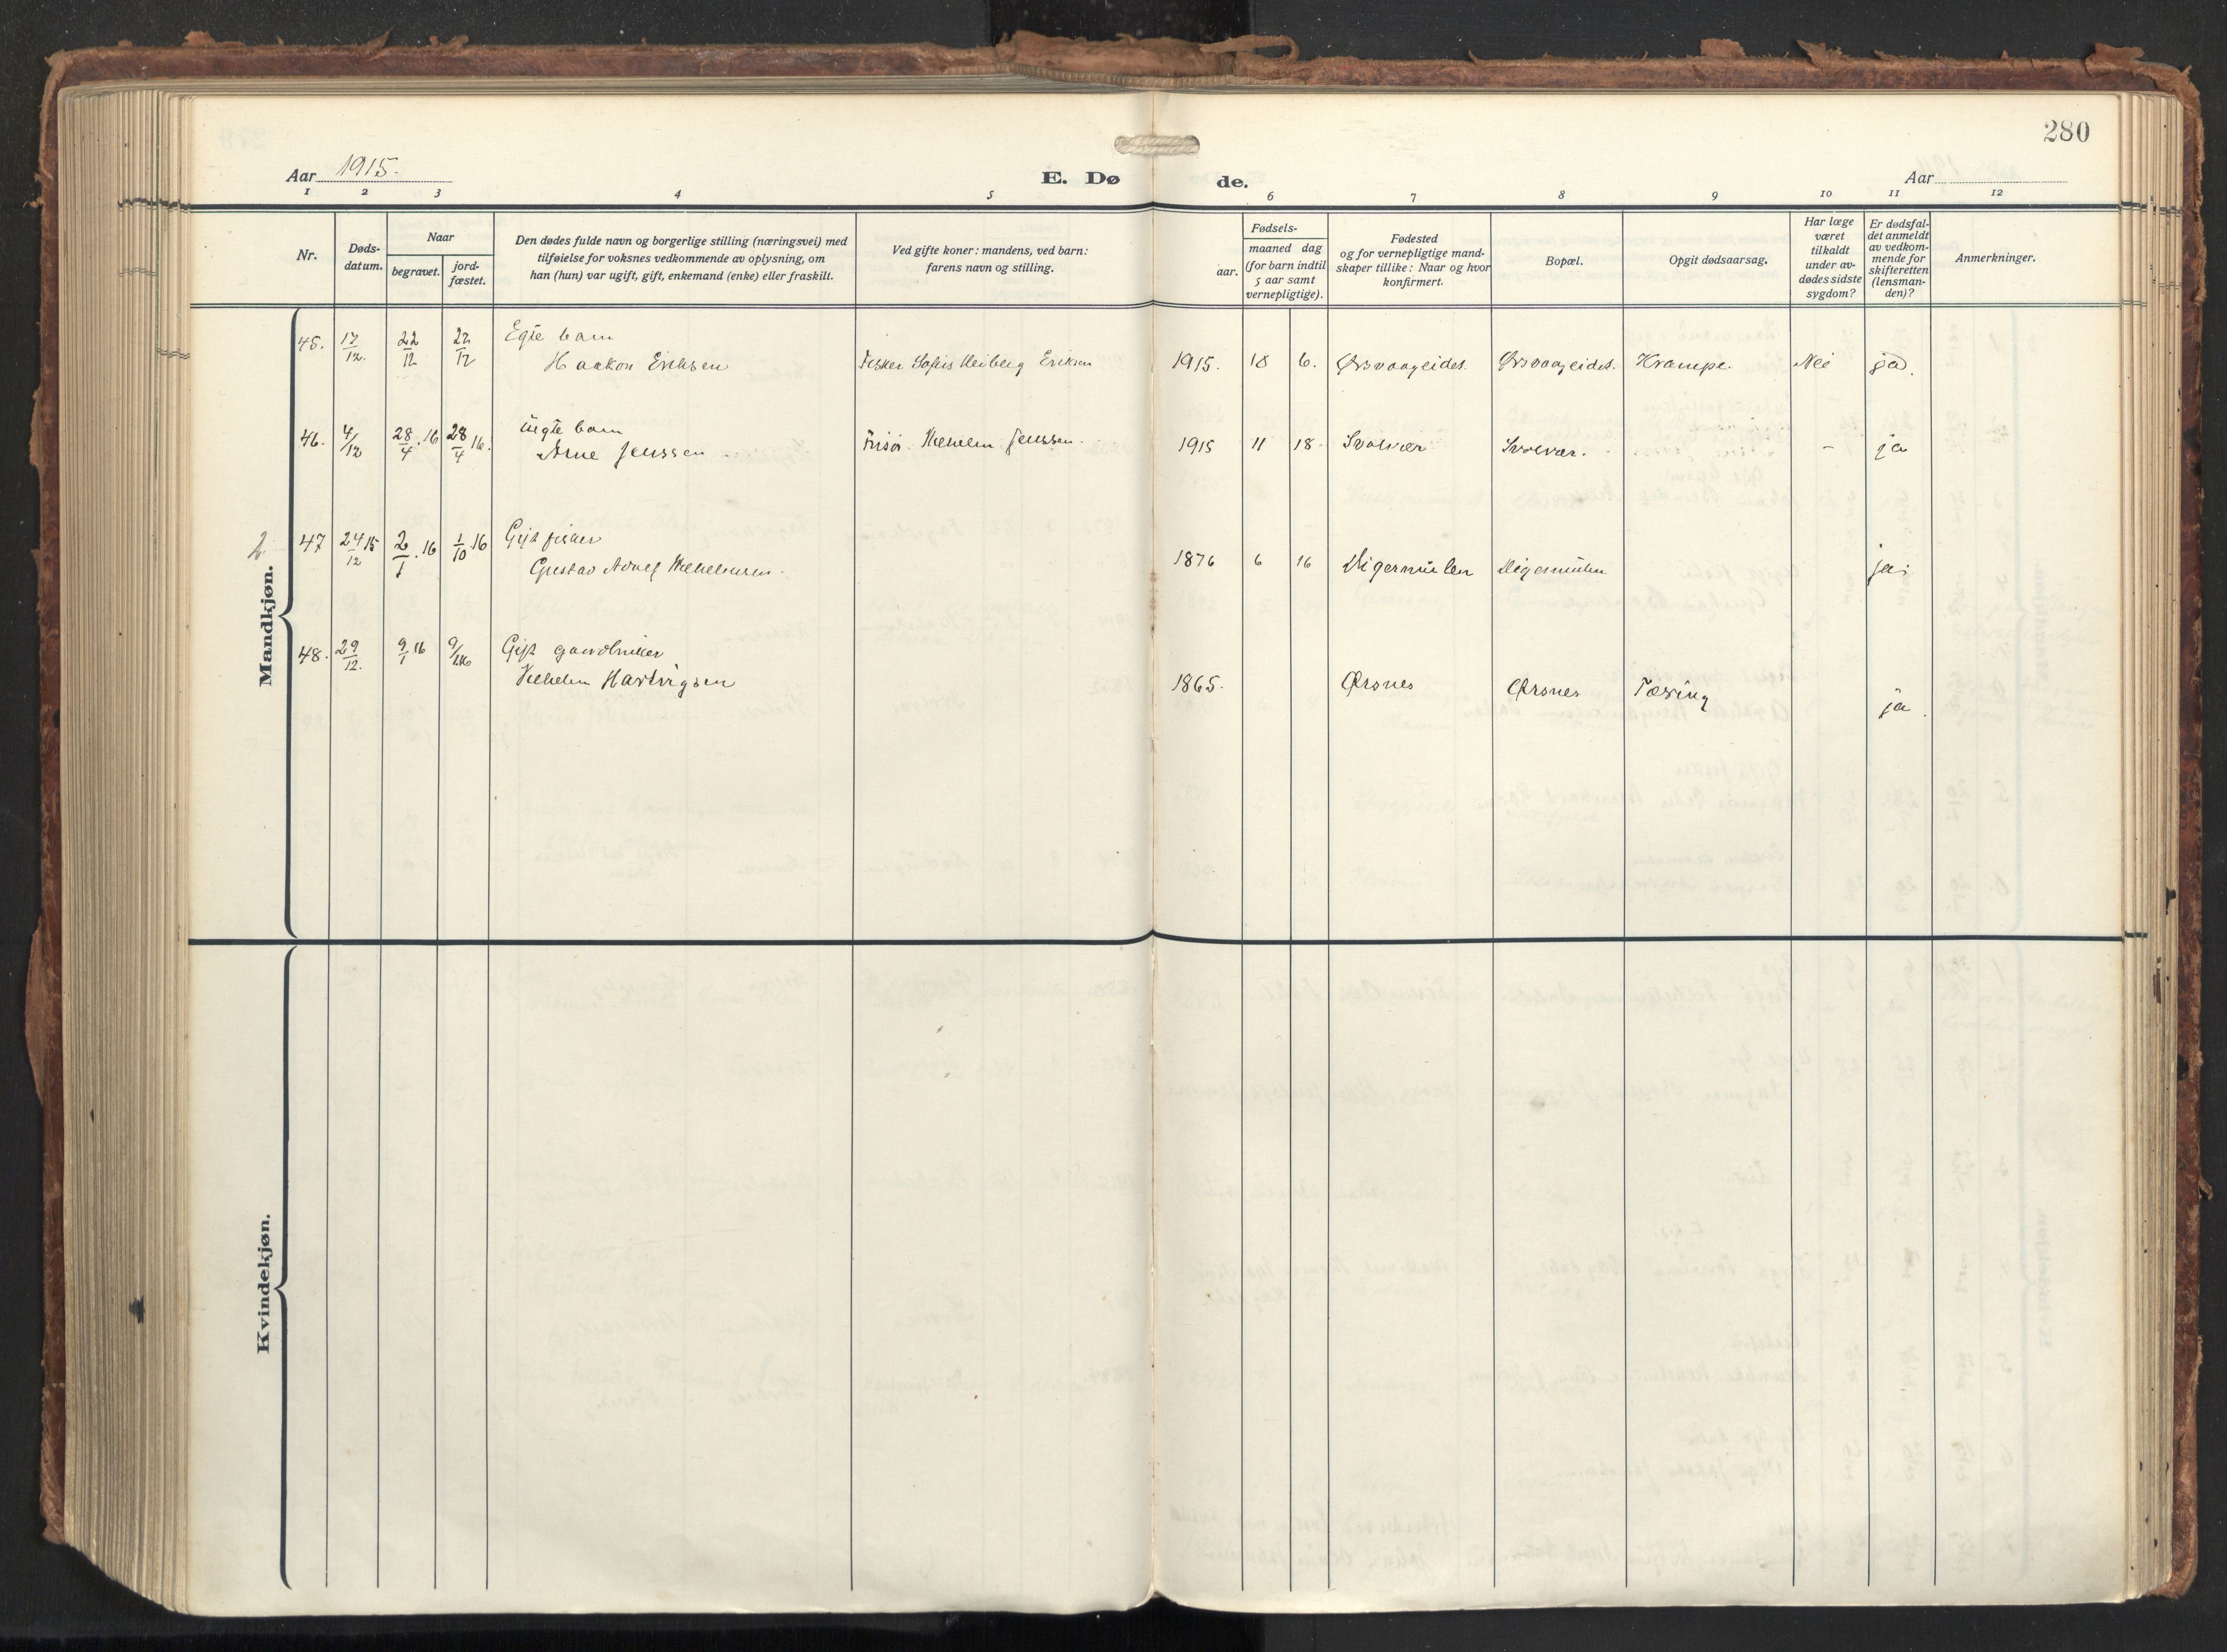 280
Aar 1915.
E. Dø de.
Aar
1 2 3 4 5 6 7 8 9 10 11 12
Nr.
Døds-
datum.
Naar
begravet.
jord-
fæstet.
Den dødes fulde navn og borgerlige stilling (næringsvei) med
tilføielse for voksnes vedkommende av oplysning, om
han (hun) var ugift, gift, enkemand (enke) eller fraskilt.
Ved gifte koner: mandens, ved barn:
farens navn og stilling.
Fødsels-
aar.
maaned dag
(for barn indtil
5 aar samt
vernepligtige).
Fødested
og for vernepligtige mand-
skaper tillike: Naar og hvor
konfirmert.
Bopæl.
Opgit dødsaarsag.
Har læge
været
tilkaldt
under av-
dødes sidste
sygdom?
Er dødsfal-
det anmeldt
av vedkom-
mende for
skifteretten
(lensman-
den)?
Anmerkninger.
Mandkjøn.
45. 17/12. 22/12 22/12 Egte barn
Haakon Eriksen Fisker Sofus Heiberg Eriksen 1915. 10 6. Ørsvaageidet. Ørsvaageidet. Krampe. Nei ja.
46. 4/12 28/4.16 28/4 16. uegte barn
Arne Jenssen Frisør Vilhelm Jenssen. 1915 11 18 Svolvær Svolvær. - ja
2 47 24/12 15 2/1.16 1/10 16 Gift fisker
Gustav Adolf Vilhelmsen 1876 6 16 Digermulen Digermulen ja.
48. 29/12. 9/1 16 9/1 16 Gift gaardbruker
Vilhelm Hartvigsen 1865. Ørsnes Ørsnes Tæring ja.
Kvindekjøn.